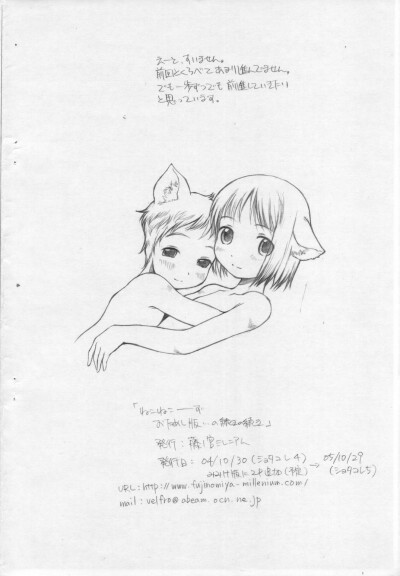 えーと、すいません。
前回とくらべてあまり進んでません。
でも一歩ずつでも前進していきたい
と思っています。
「ねこねこ
おためし版
発行: 藤ノ宮ミレニアム
発行日: 04/10/30 (ショタコレ4) → 05/10/29
(ショタコレ5)
URL: http://www.fujinomiya-millenium.com/
mail: velfro@abeam.ocn.ne.jp